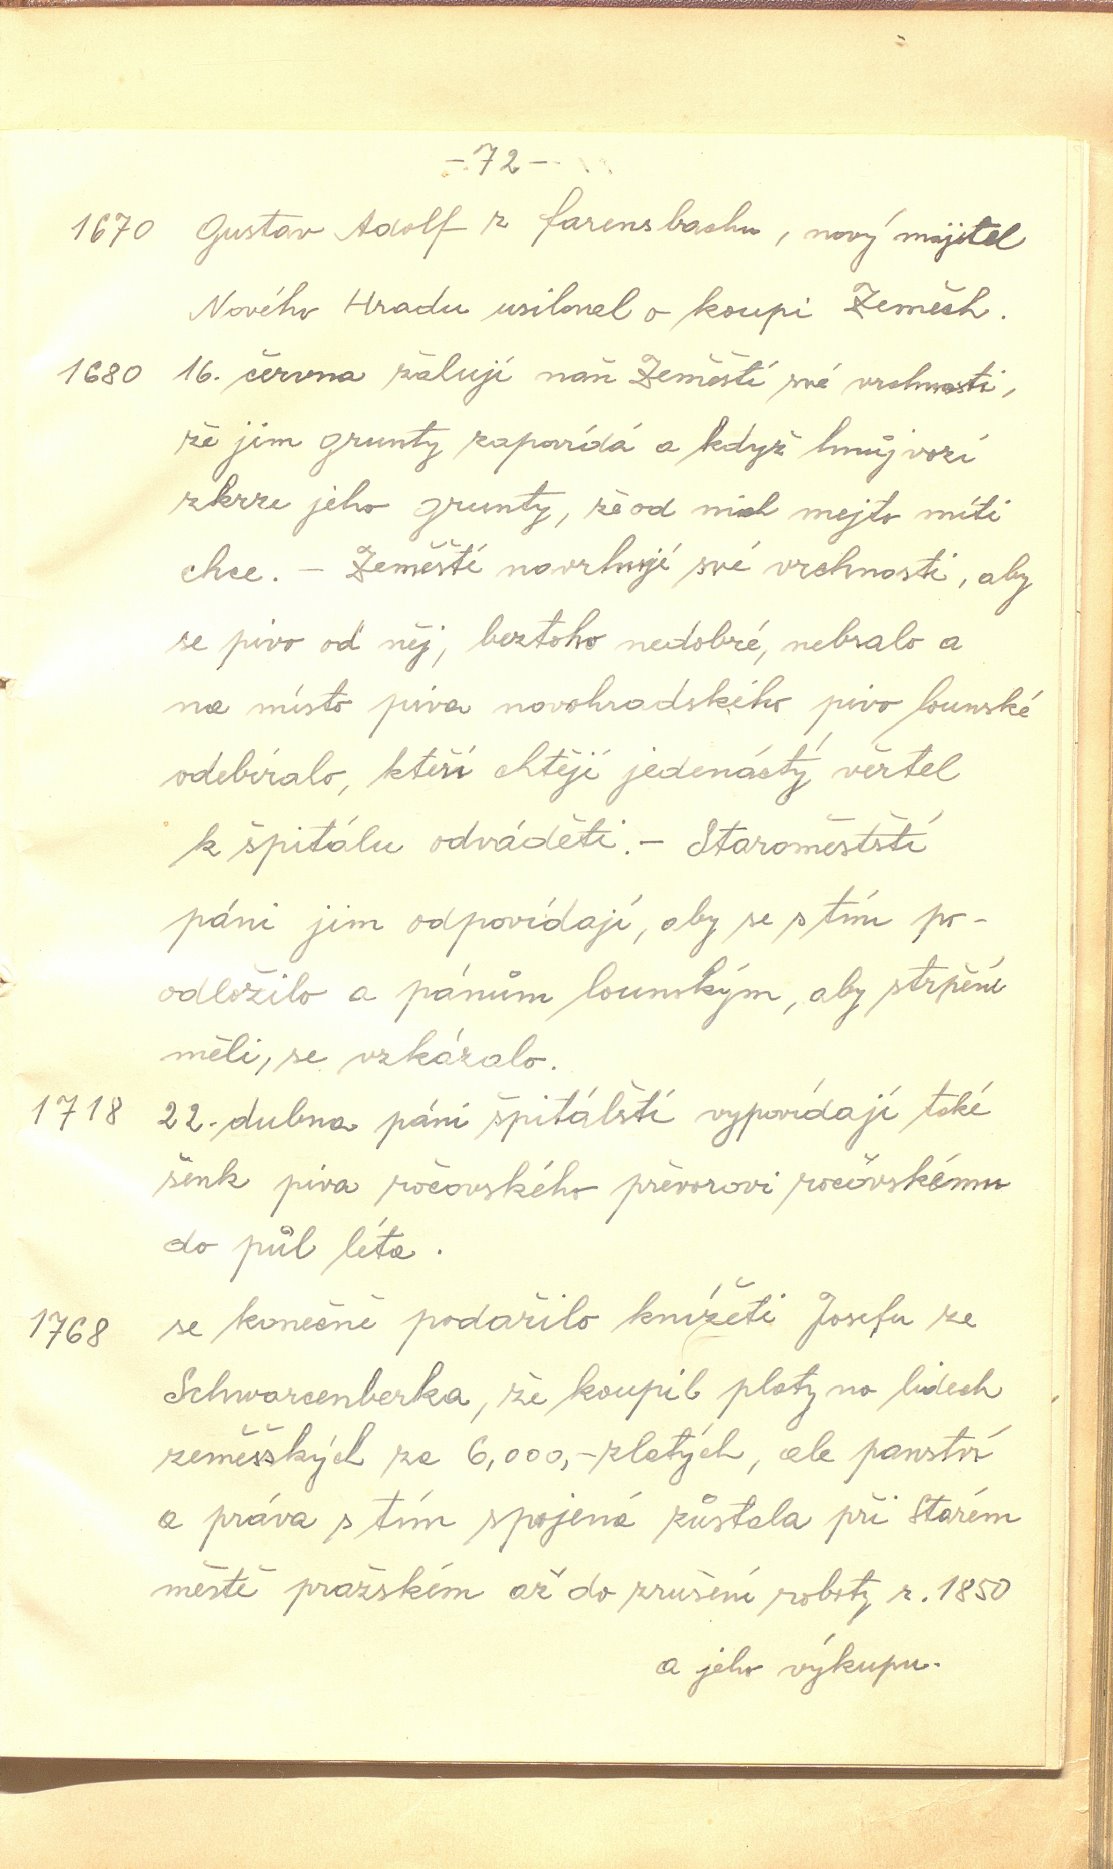 - 72 -
1670 Gustav Adolf z Farensbachu, nový majitel
Nového Hradu usiloval o koupi Zeměch.
1680 16. června žalují naň Zeměští své vrchnosti,
že jim grunty zapovídá a když hnůj vozí
zkrze jeho grunty, že od nich mejto míti
chce. - Zeměští navrhují své vrchnosti, aby
se pivo od něj, beztoho nedobré, nebralo a
na místo piva novohradského pivo lounské
odebíralo, kteří chtějí jedenáctý věrtel
k špitálu odváděti. - Staroměstští
páni jim odpovídají, aby se s tím po-
odložilo a pánům lounským, aby strpění
měli, se vzkázalo.
1718 22. dubna páni špitálští vypovídají také
šenk piva ročovského převorovi ročovskému
do půl léta.
1768 se konečně podařilo knížeti Josefu ze
Schwarcenberka, že koupil platy na lidech
zeměšských za 6,000,- zlatých, ale panství
a práva s tím spojená zůstala při Starém
městě pražském až do zrušení roboty r. 1850
a jeho výkupu.